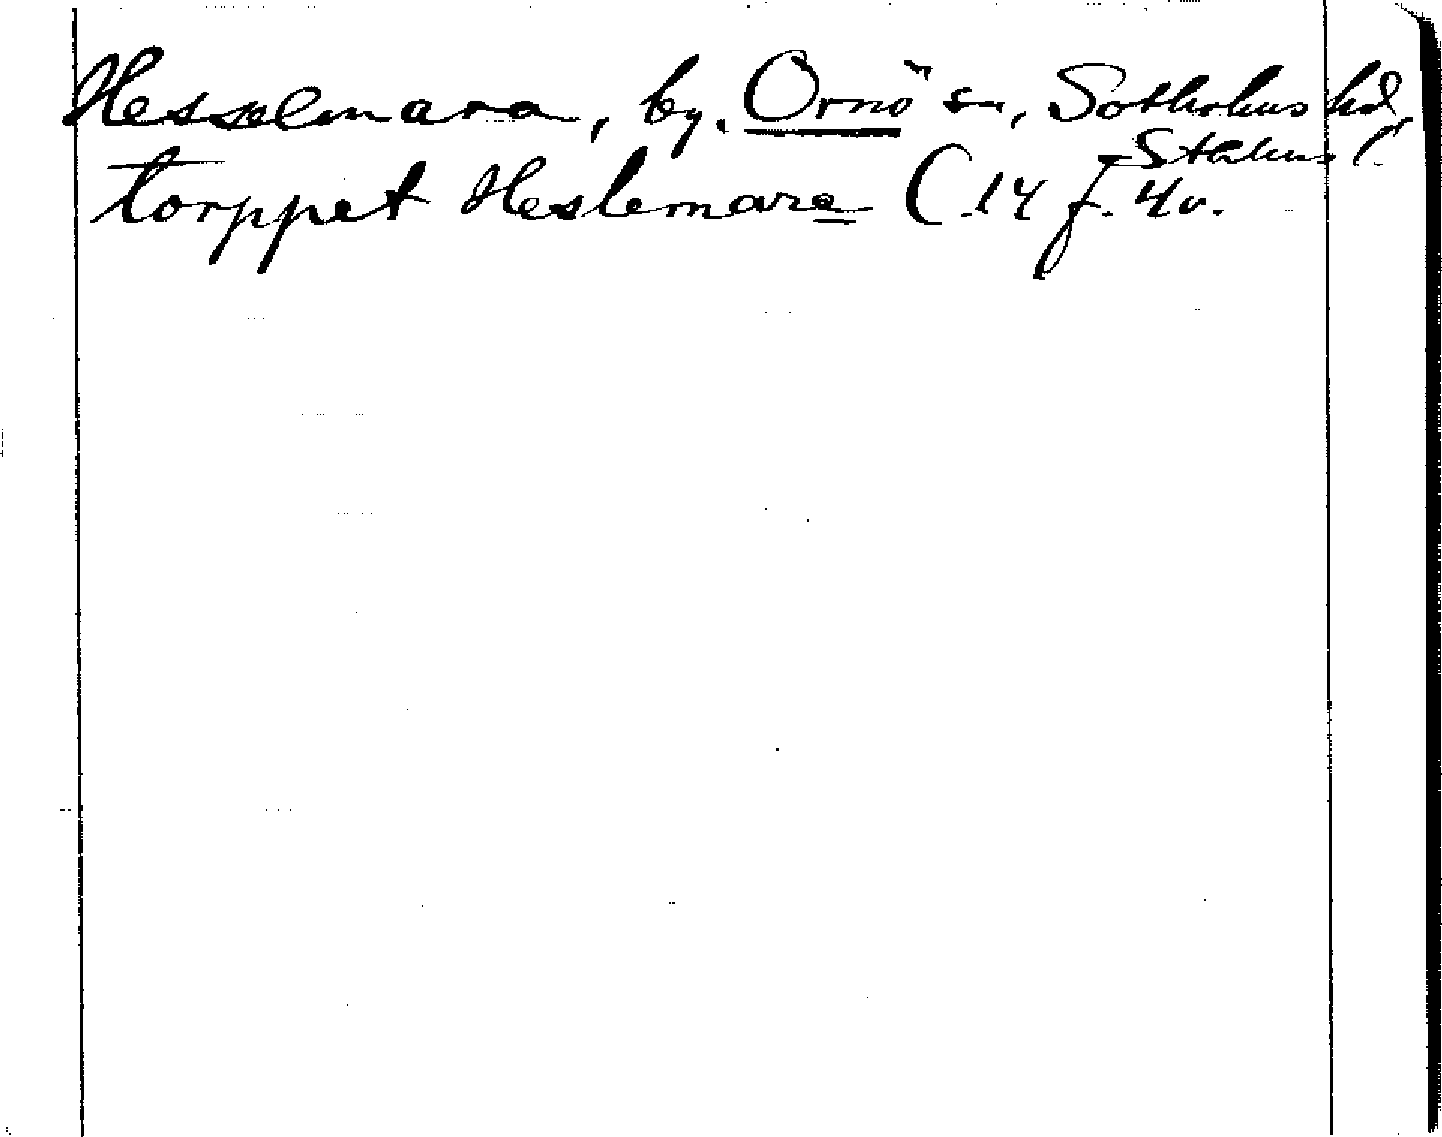 Hesselmara, by. Ornö sn, Sotholms hd,
Sthlms l.
torppet Heslemare (14 f. 4v.